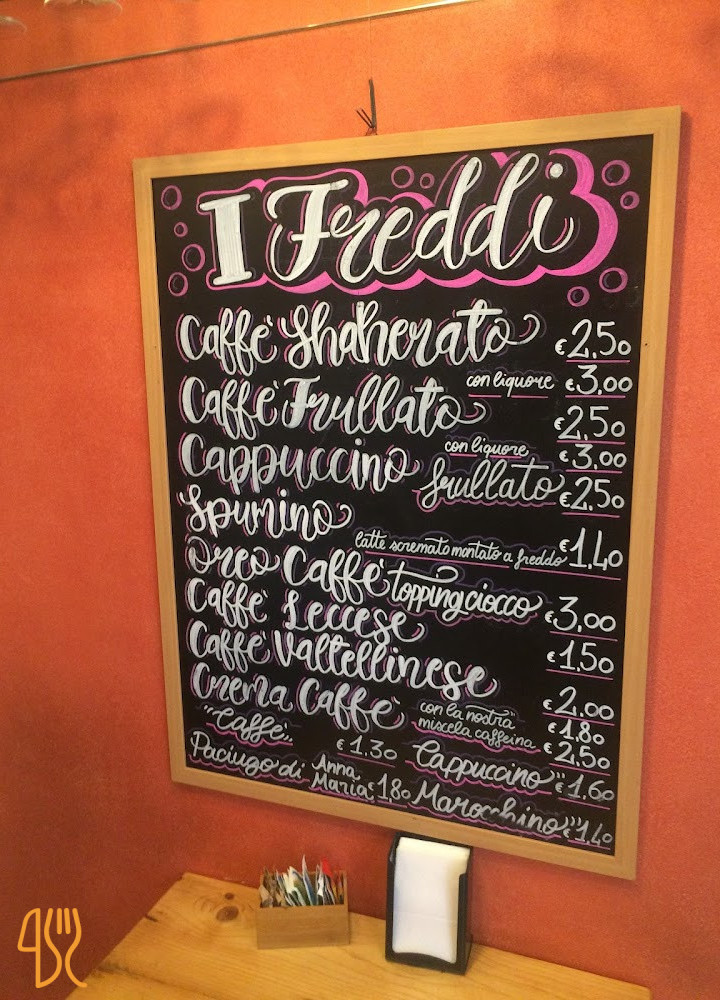 I Freddi
Caffè Shakerato €2,50
con liquore €3,00
Caffè Frullato €2,50
con liquore €3,00
Cappuccino frullato €2,50
Spumino
latte scremato montato a freddo €1,40
Oreo Caffè topping ciocco €3,00
Caffè Leccese €1,50
Caffè Valtellinese €2,00
Crema Caffè con la nostra €1,80
miscela caffeina €2,50
"Caffè" €1.30 Cappuccino €1.60
Paciugo di Anna Maria €1,80 Marocchino €1,40